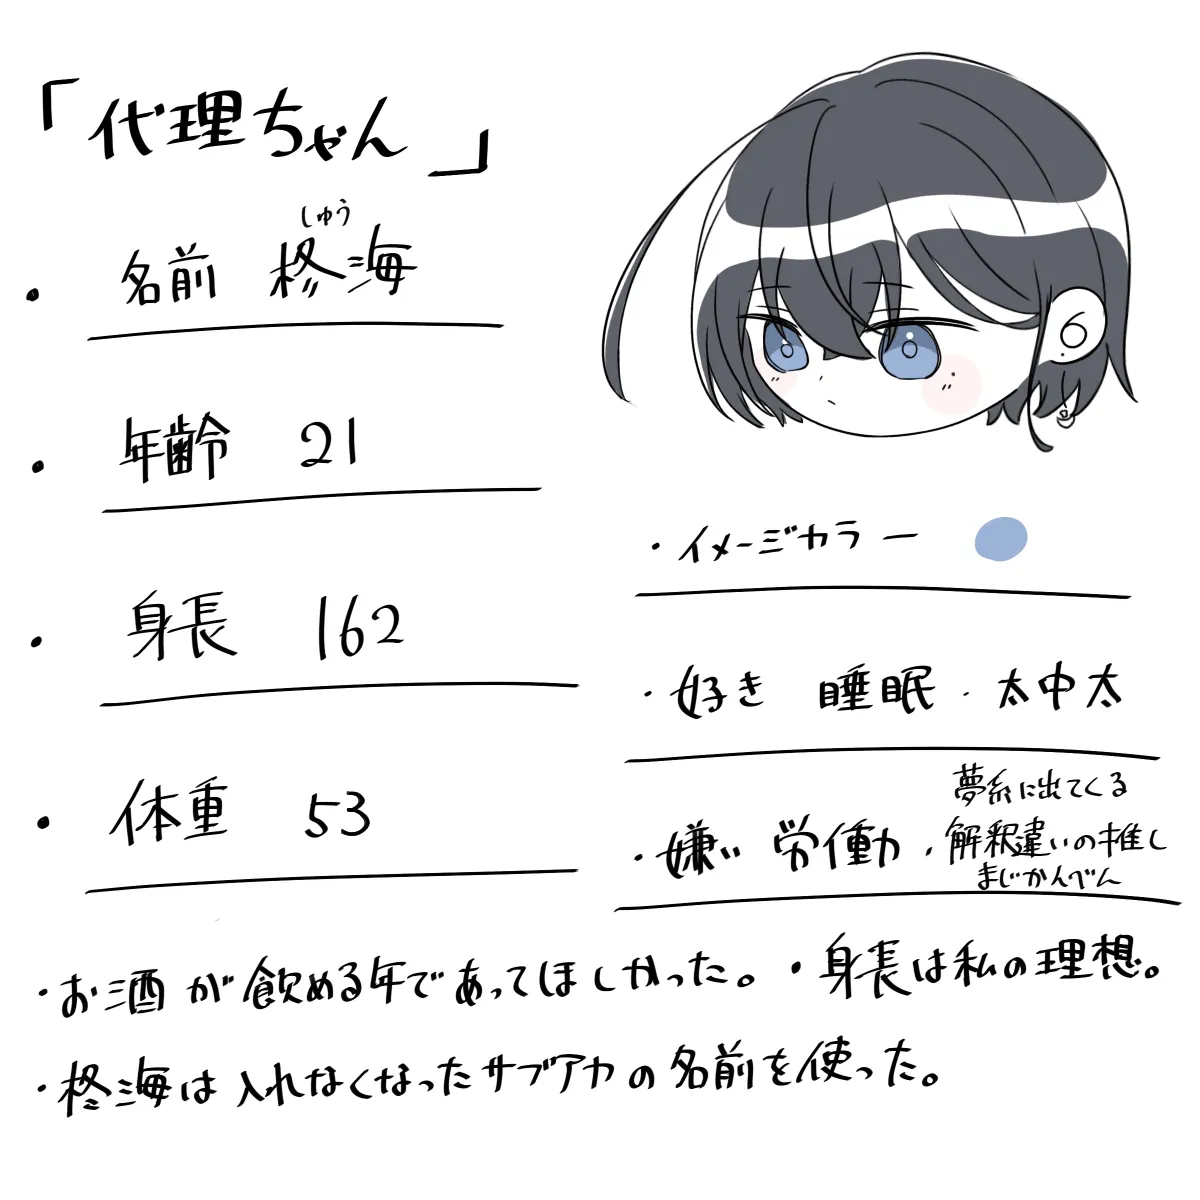 「代理ちゃん」
しゅう
・名前 柊海
・年齢 21
・身長 162
・体重 53
・イメージカラー
・好き 睡眠・太中太
・嫌い 労働・
夢系に出てくる
解釈違いの推し
まじかんべん
・お酒が飲める年であってほしかった。・身長は私の理想。
・柊海は入れなくなったサブアカの名前を使った。